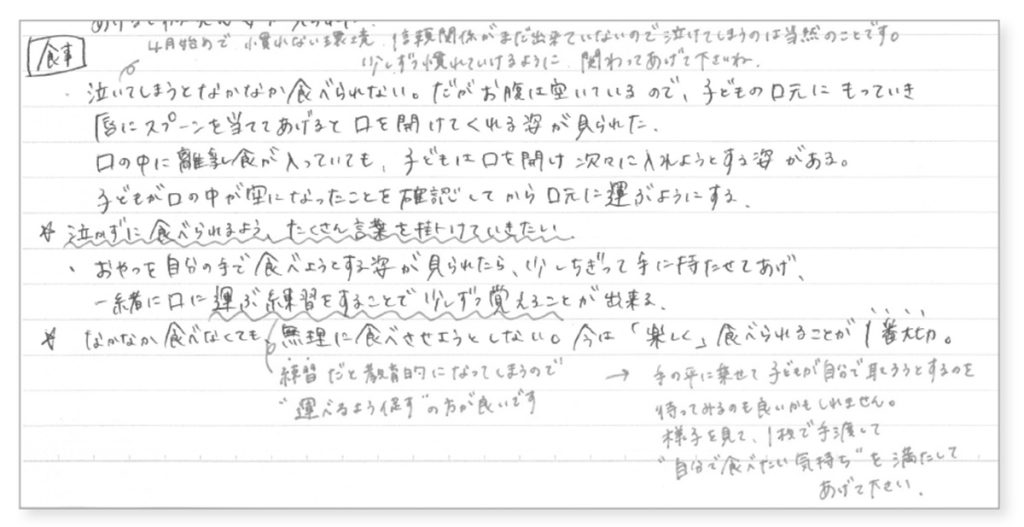 食事
4月始めで 慣れない環境、信頼関係がまだ出来ていないので泣けてしまうのは当然のことです。
少しずつ慣れていけるように 関わってあげて下さいね。
・泣いてしまうとなかなか食べられない。だがお腹は空いているので、子どもの口元にもっていき
唇にスプーンを当ててあげると口を開けてくれる姿が見られた。
口の中に離乳食が入っていても、子どもは口を開け次々に入れようとする姿がある。
子どもが口の中が空になったことを確認してから口元に運ぶようにする。
☆泣かずに食べられるよう、たくさん言葉を掛けていきたい。
・おやつを自分の手で食べようとする姿が見られたら、少しちぎって手に持たせてあげ、
一緒に口に運ぶ練習をすることで少しずつ覚えることが出来る。
☆なかなか食べなくても、無理に食べさせようとしない。今は「楽しく」食べられることが1番大切。
練習だと教育的になってしまうので
"運べるよう促す"の方が良いです
→ 手の平に乗せて子どもが自分で取ろうとするのを
待ってみるのも良いかもしれません。
様子を見て、1枚で手渡して
"自分で食べたい気持ち"を満たして
あげて下さい。